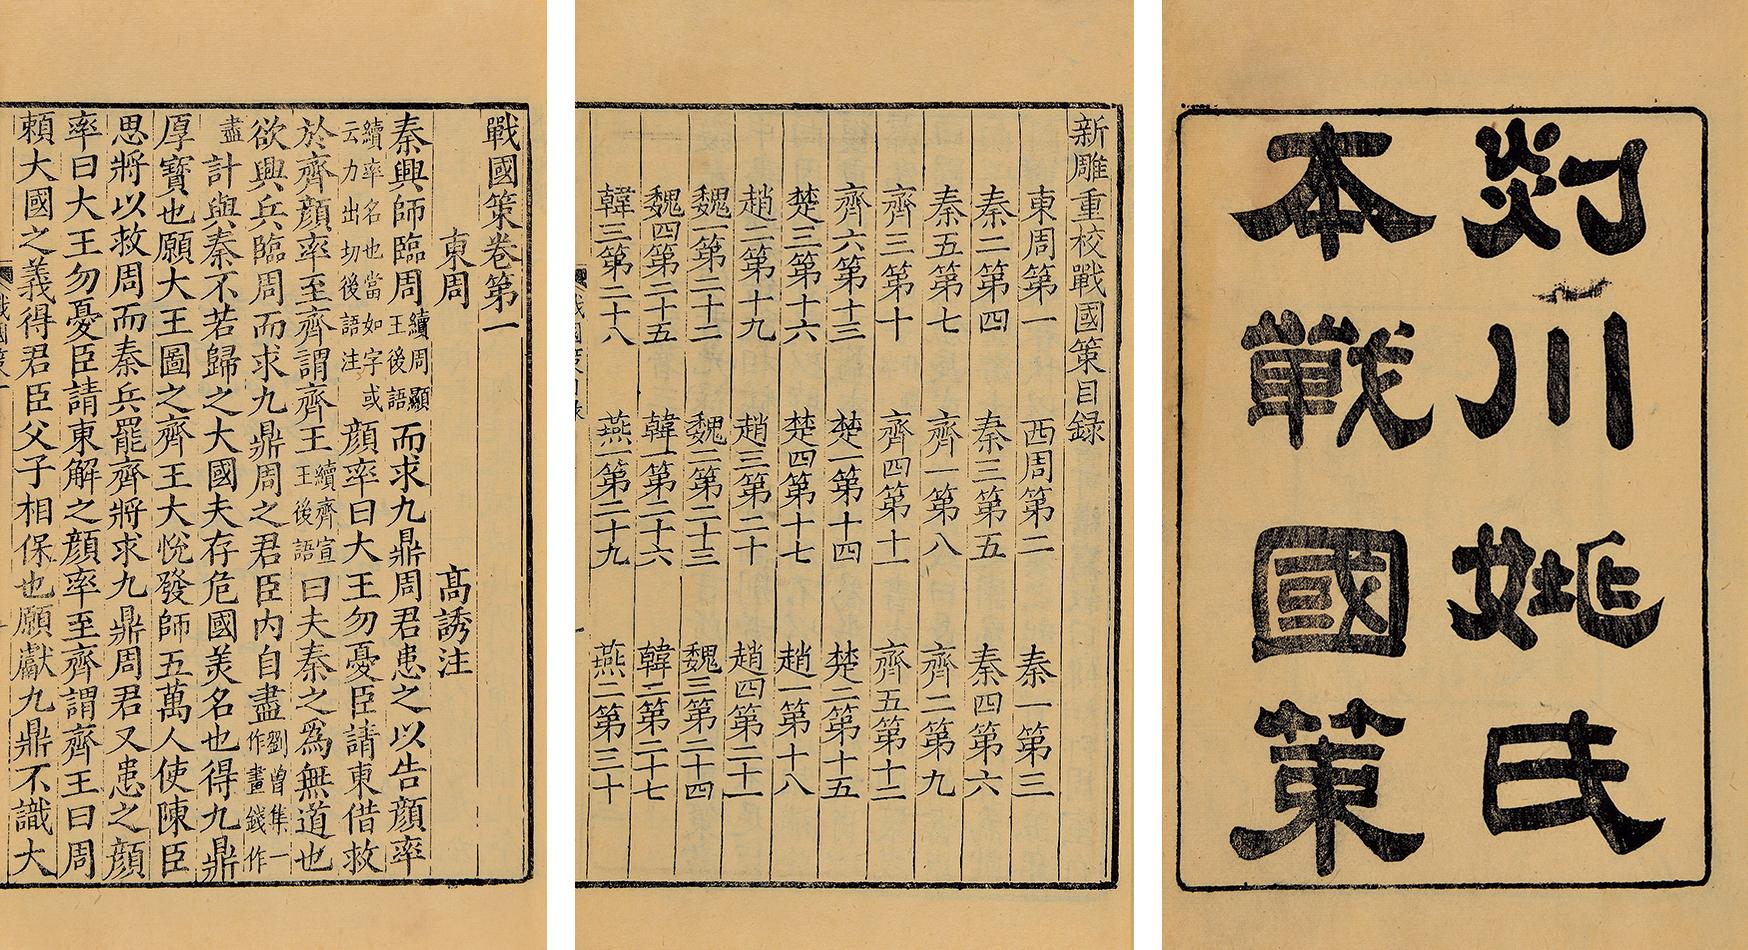 剡川姚氏
本戰國策
新雕重校戰國策目録
東周第一 西周第二 秦一第三
秦二第四 秦三第五 秦四第六
秦五第七 齊一第八 齊二第九
齊三第十 齊四第十一 齊五第十二
齊六第十三 楚一第十四 楚二第十五
楚三第十六 楚四第十七 趙一第十八
趙二第十九 趙三第二十 趙四第二十一
魏一第二十二 魏二第二十三 魏三第二十四
魏四第二十五 韓一第二十六 韓二第二十七
韓三第二十八 燕一第二十九 燕二第三十
戰國策卷第一
東周 高誘注
秦興師臨周續周顯王後語而求九鼎周君患之以告顏率
續率名也當如字或云力出切後語注顏率曰大王勿憂臣請東借救
於齊顏率至齊謂齊王續齊宣王後語曰夫秦之爲無道也
欲興兵臨周而求九鼎周之君臣内自盡劉曾集一作畫錢作
盡計與秦不若歸之大國夫存危國美名也得九鼎
厚寶也願大王圖之齊王大悅發師五萬人使陳臣
思將以救周而秦兵罷齊將求九鼎周君又患之顏
率曰大王勿憂臣請東解之顏率至齊謂齊王曰周
賴大國之義得君臣父子相保也願獻九鼎不識大